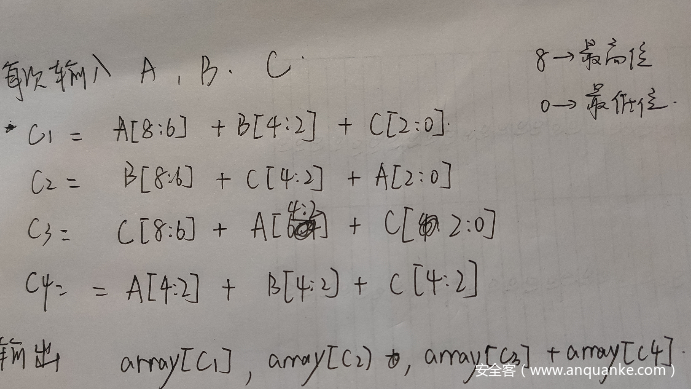 每次输入 A, B. C.
8→最高位
0→最低位.
C1 = A[8:6] + B[4:2] + C[2:0].
C2 = B[8:6] + C[4:2] + A[2:0]
C3 = C[8:6] + A[4:2] + C[2:0]
C4 = = A[4:2] + B[4:2] + C[4:2]
输出 array[C1], array[C2), array[C3] + array[C4].
安全客（www.anquanke.com）